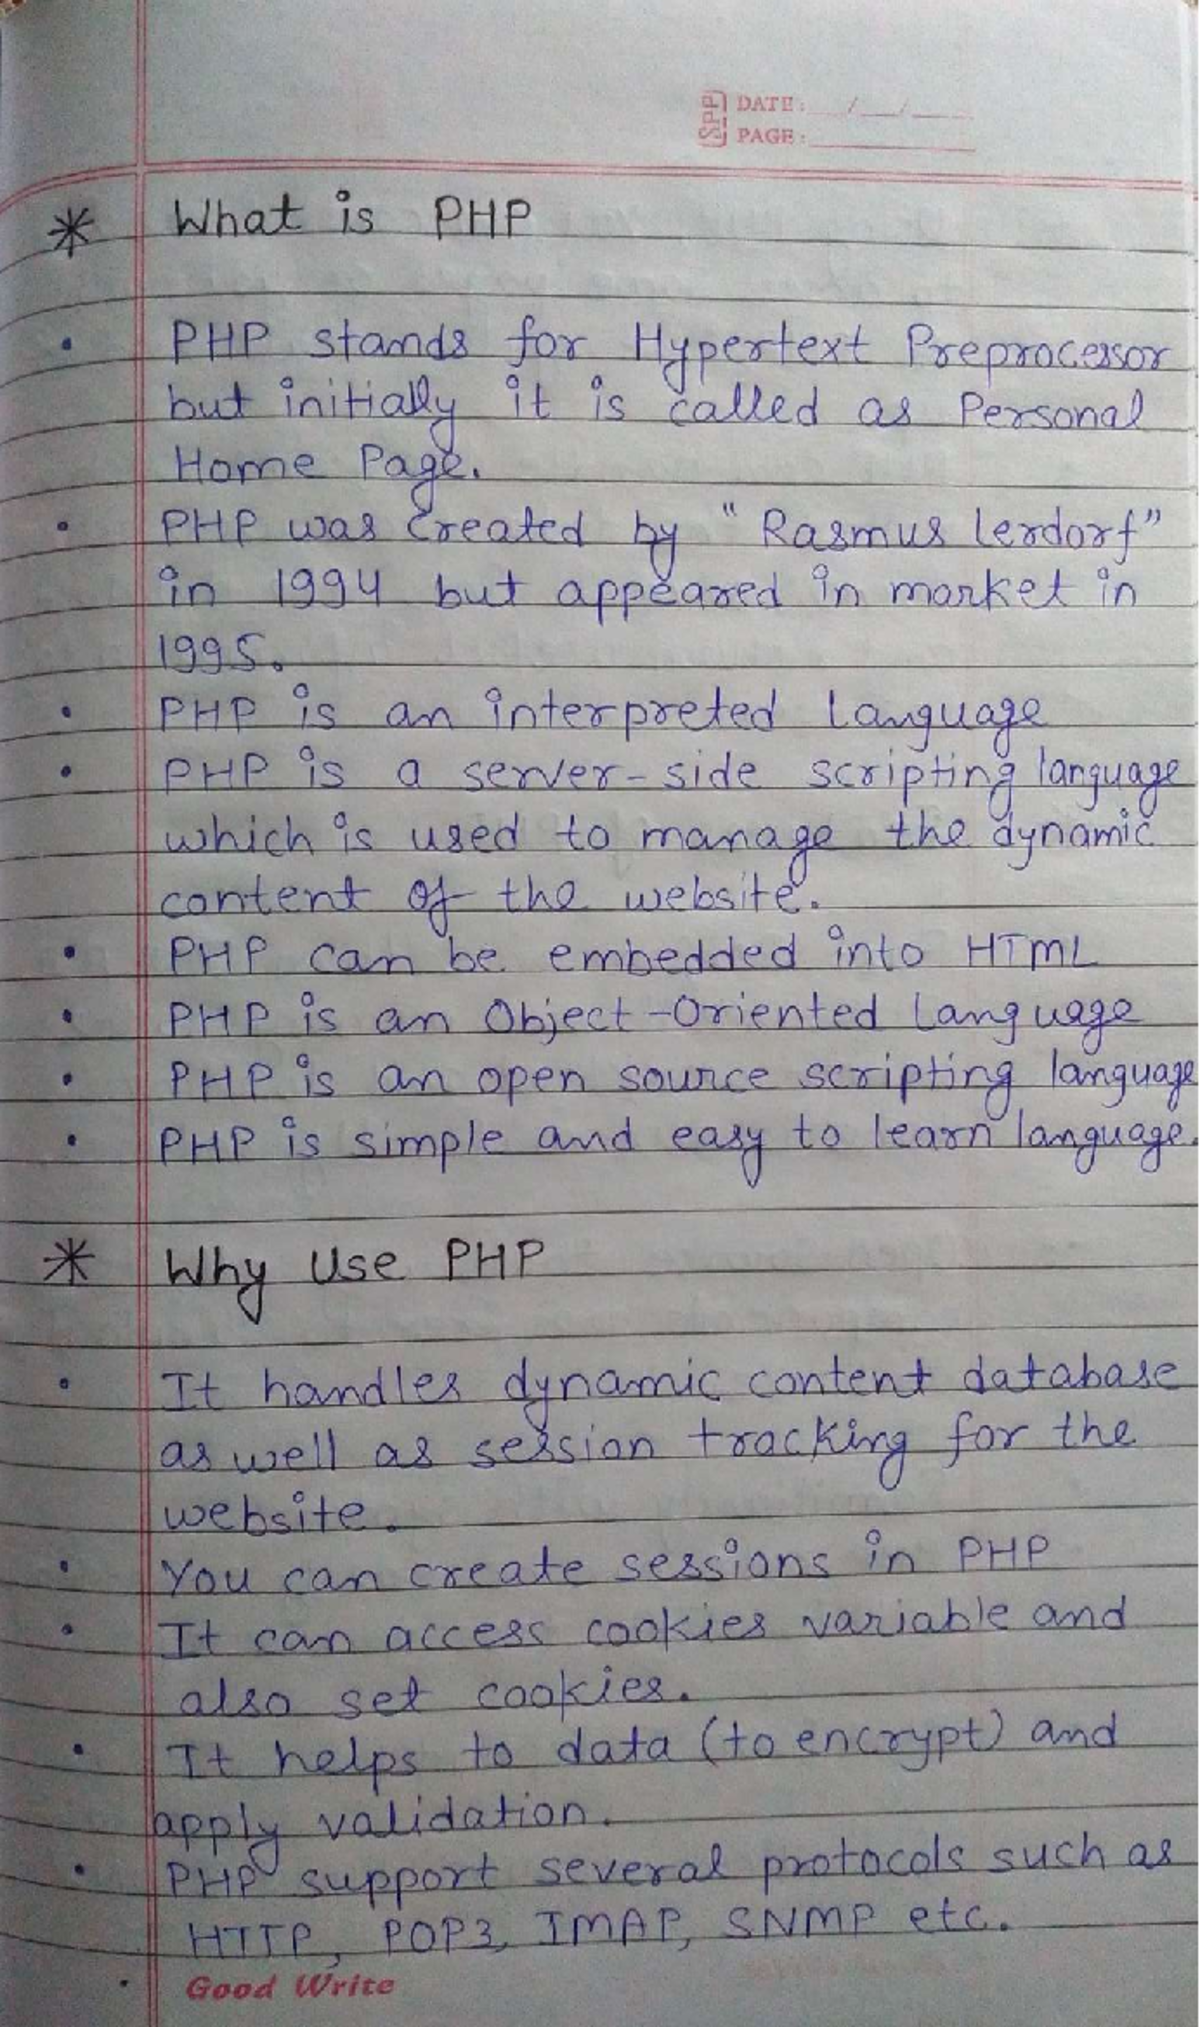 SPP DATE: __/__/____
PAGE:
* What is PHP
• PHP stands for Hypertext Preprocessor
but initially it is called as Personal
Home Page.
• PHP was created by "Rasmus lerdorf"
in 1994 but appeared in market in
1995.
• PHP is an interpreted language
• PHP is a server-side scripting language
which is used to manage the dynamic
content of the website.
• PHP can be embedded into HTML
• PHP is an Object-Oriented language
• PHP is an open source scripting language
• PHP is simple and easy to learn language.
* Why Use PHP
• It handles dynamic content database
as well as session tracking for the
website.
• You can create sessions in PHP
• It can access cookies variable and
also set cookies.
• It helps to data (to encrypt) and
apply validation.
• PHP support several protocols such as
HTTP, POP3, IMAP, SNMP etc.
• Good Write